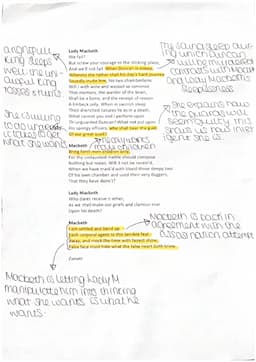 Lady Macbeth
We fail?
But screw your courage to the sticking-place,
And we'll not fail. When Duncan is asleep,
Whereto the rather shall his day's hard journey
Soundly invite him, his two chamberlains
Will I with wine and wassail so convince
That memory, the warder of the brain,
Shall be a fume, and the receipt of reason
A limbeck only. When in swinish sleep
Their drenched natures lie as in a death,
What cannot you and I perform upon
Th'unguarded Duncan? What not put upon
His spongy officers, who shall bear the guilt
Of our great quell?
Macbeth
Bring forth men-children only,
For thy undaunted mettle should compose
Nothing but males. Will it not be receiv'd,
When we have mark'd with blood those sleepy two
Of his own chamber and us'd their very daggers,
That they have done't?
Lady Macbeth
Who dares receive it other,
As we shall make our griefs and clamour roar
Upon his death?
Macbeth
I am settled and bend up
Each corporal agent to this terrible feat.
Away, and mock the time with fairest show,
False face must hide what the false heart doth know.
Exeunt
king sleeps
well the
king
She is willing
to do
it takes to get
what she wants.
sleep
which Duncan
will be
contrasts with
and lady Macbeth
sleeplessness
She explains how
the guards will
seem guilty, this
shows us how
she is.
Macbeth is back in
agreement with the
assassination attempt
Macbeth is letting Lady M
manipulate him into thinking
what she wants is what he
wants.